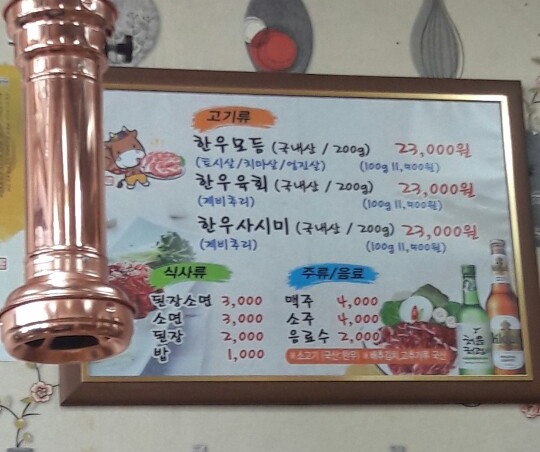 고기류
한우모듬 (국내산 / 200g) 23,000원
(토시살/치마살/업진살) (100g 11,500원)
한우육회 (국내산 / 200g) 23,000원
(제비추리) (100g 11,500원)
한우사시미 (국내산 / 200g) 23,000원
(제비추리) (100g 11,500원)
식사류
된장소면 3,000
소면 3,000
된장 2,000
밥 1,000
주류/음료
맥주 4,000
소주 4,000
음료수 2,000
※소고기 (국산 한우) ※배추김치, 고추가루 국산
처음처럼